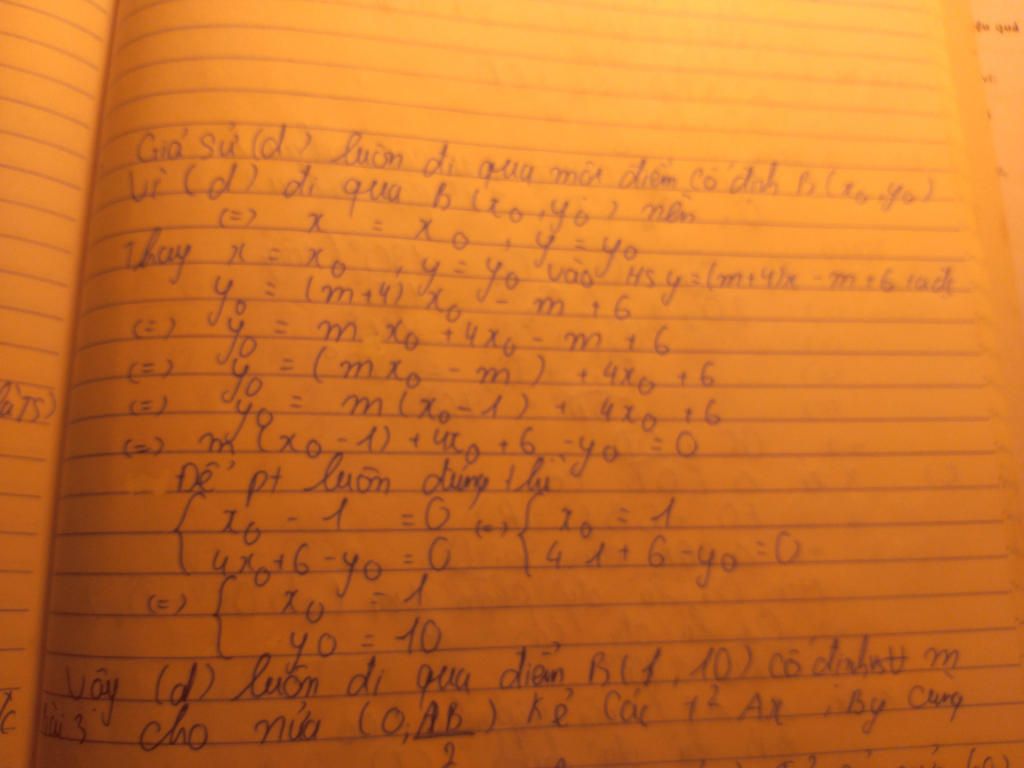 Giả sử (d) luôn đi qua một điểm cố định B(x₀,y₀)
Vì (d) đi qua B(x₀,y₀) nên
(=) x = x₀, y = y₀
Thay x = x₀, y = y₀ vào HS y=(m+4)x - m+6 ta đc
y₀ = (m+4) x₀ - m + 6
(=) y₀ = m x₀ + 4x₀ - m + 6
(=) y₀ = (m x₀ - m) + 4x₀ + 6
(=) y₀ = m(x₀-1) + 4x₀ + 6
(=) m (x₀-1) + 4x₀ + 6 - y₀ = 0
Để pt luôn đúng thì
{ x₀ - 1 = 0 (=) { x₀ = 1
4x₀+6-y₀ = 0 4.1 + 6 - y₀ = 0
(=) { x₀ = 1
y₀ = 10
Vậy (d) luôn đi qua điểm B(1,10) cố định m
bài 3 cho nửa (O, AB/2) kẻ các t² Ax, By cùng